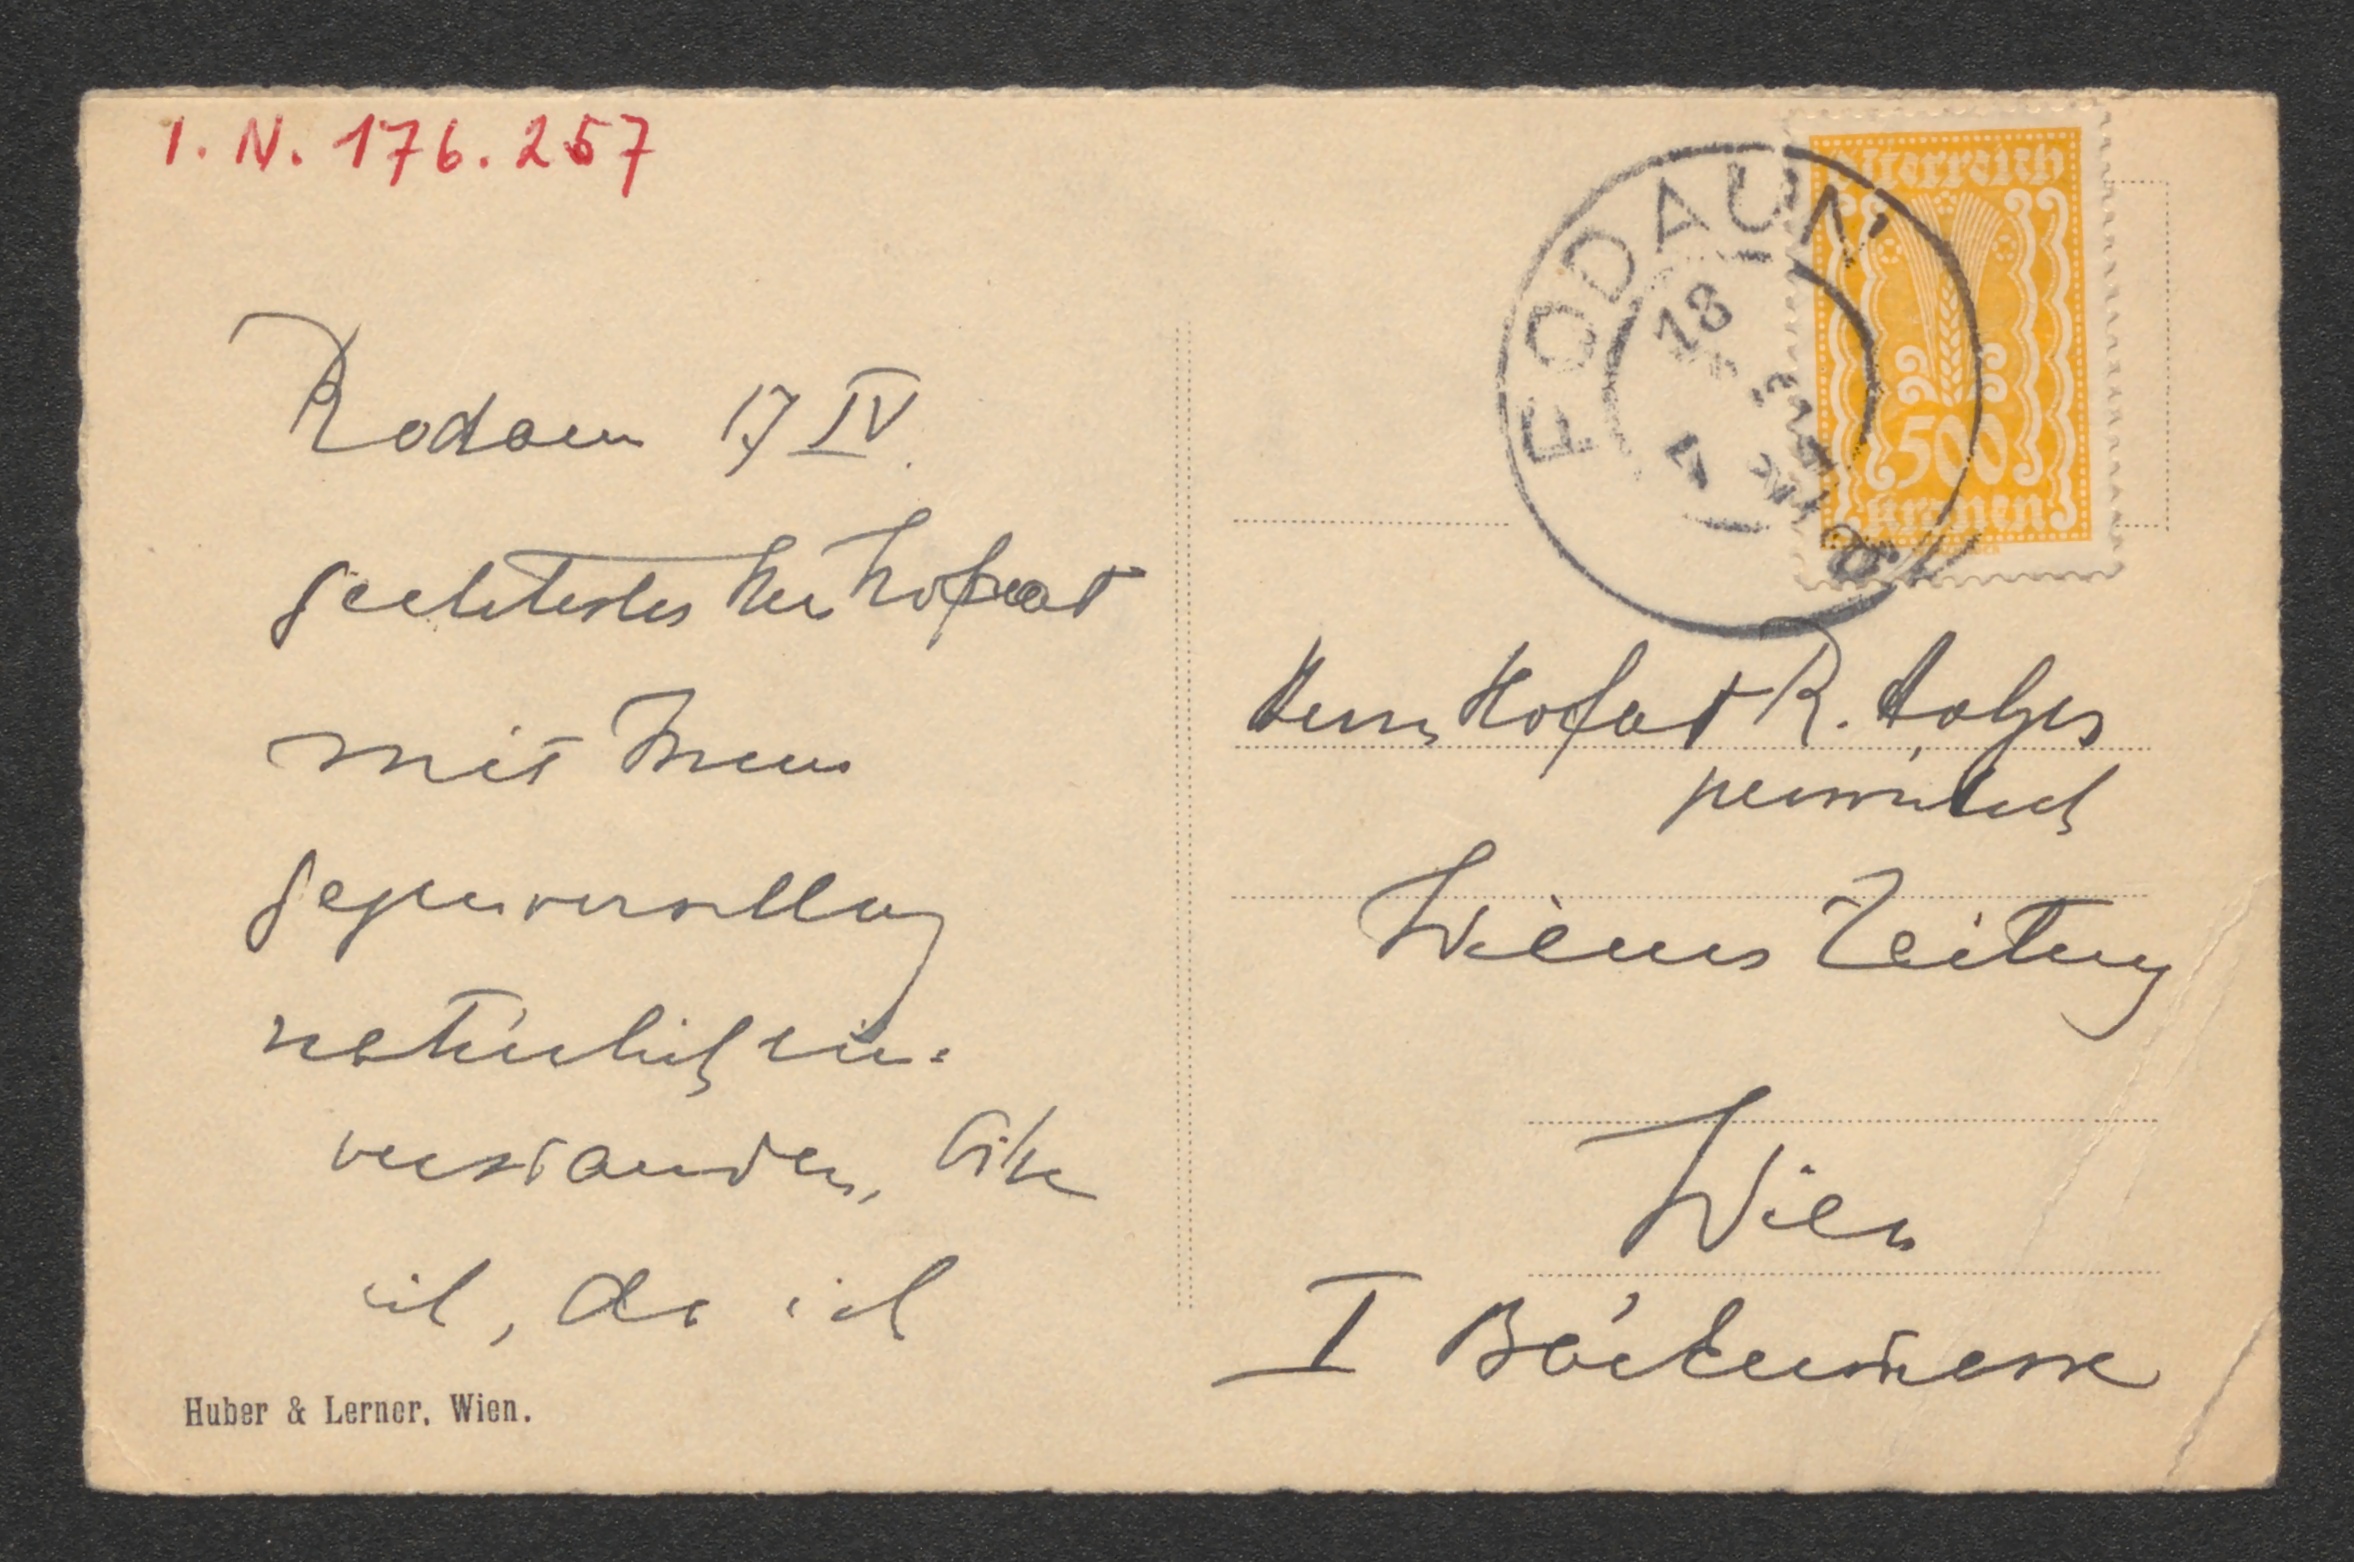 I. N. 176.257
Rodaun 17 IV.
geehrtester Herr Hofrat
mit Ihrem
Gegenvorschlag
natürlich ein-
verstanden, bitte
ich, da ich
Huber & Lerner, Wien.
RODAUN
18
Österreich
500
Kronen
Herrn Hofrat R. Holzer
persönlich
Wiener Zeitung
Wien
I Bäckerstrasse